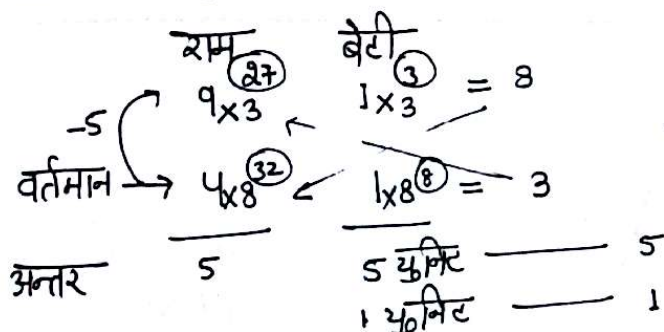 राम बेटी
9×3 (27) 1×3 (3) = 8
-5
वर्तमान → 4×8 (32) 1×8 (8) = 3
अन्तर 5 5 युनिट —— 5
1 युनिट —— 1